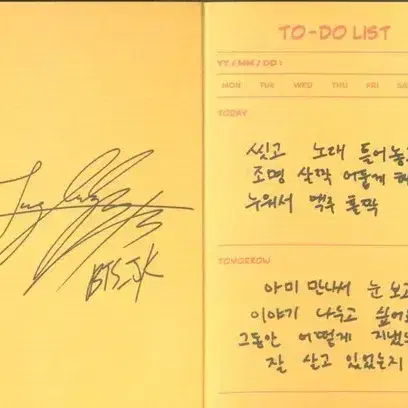 BTS_JK
TO-DO LIST
YY / MM / DD :
MON TUE WED THU FRI
TODAY
씻고 노래 틀어놓
조명 살짝 어둡게
누워서 맥주 홀짝
TOMORROW
아미 만나서 눈 보고
이야기 나누고 싶어
그동안 어떻게 지냈
잘 살고 있었는지